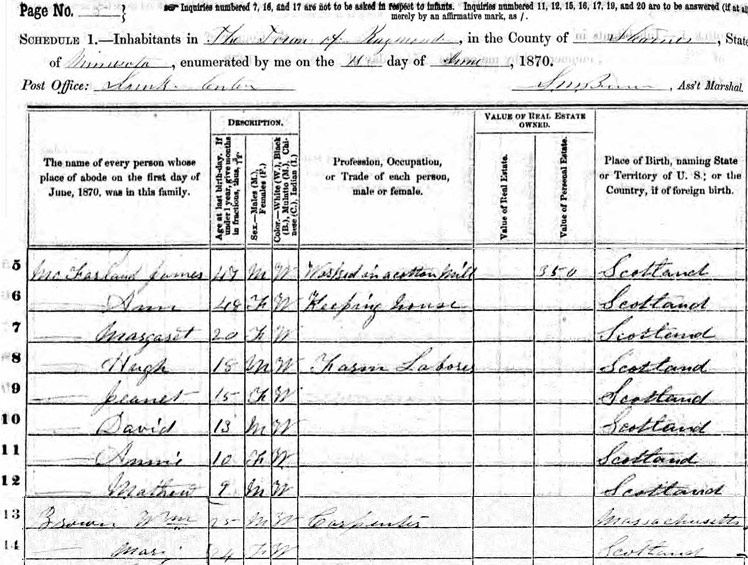 Page No. Inquiries numbered 7, 16, and 17 are not to be asked in respect to infants. Inquiries numbered 11, 12, 15, 16, 17, 19, and 20 are to be answered (if at al
merely by an affirmative mark, as /.
SCHEDULE 1.—Inhabitants in The Town of Raymond, in the County of Stearns, State
of Minnesota, enumerated by me on the day of June, 1870.
Post Office: Sauk Center , Ass't Marshal.
The name of every person whose place of abode on the first day of June, 1870, was in this family.
DESCRIPTION.
Age at last birth-day. If under 1 year, give months in fractions, thus, 3/12.
Sex.—Males (M.), Females (F.)
Color.—White (W.), Black (B.), Mulatto (M.), Chinese (C.), Indian (I.)
Profession, Occupation, or Trade of each person, male or female.
VALUE OF REAL ESTATE OWNED.
Value of Real Estate.
Value of Personal Estate.
Place of Birth, naming State or Territory of U. S.; or the Country, if of foreign birth.
5 McFarland James 47 M W Worked in a cotton Mill 350 Scotland
6 — Ann 48 F W Keeping house Scotland
7 — Margaret 20 F W Scotland
8 — Hugh 18 M W Farm Laborer Scotland
9 — Jeanet 15 F W Scotland
10 — David 13 M W Scotland
11 — Annie 10 F W Scotland
12 — Mathew 9 M W Scotland
13 Brown Wm 25 M W Carpenter Massachusetts
14 — Mary 24 F W Scotland